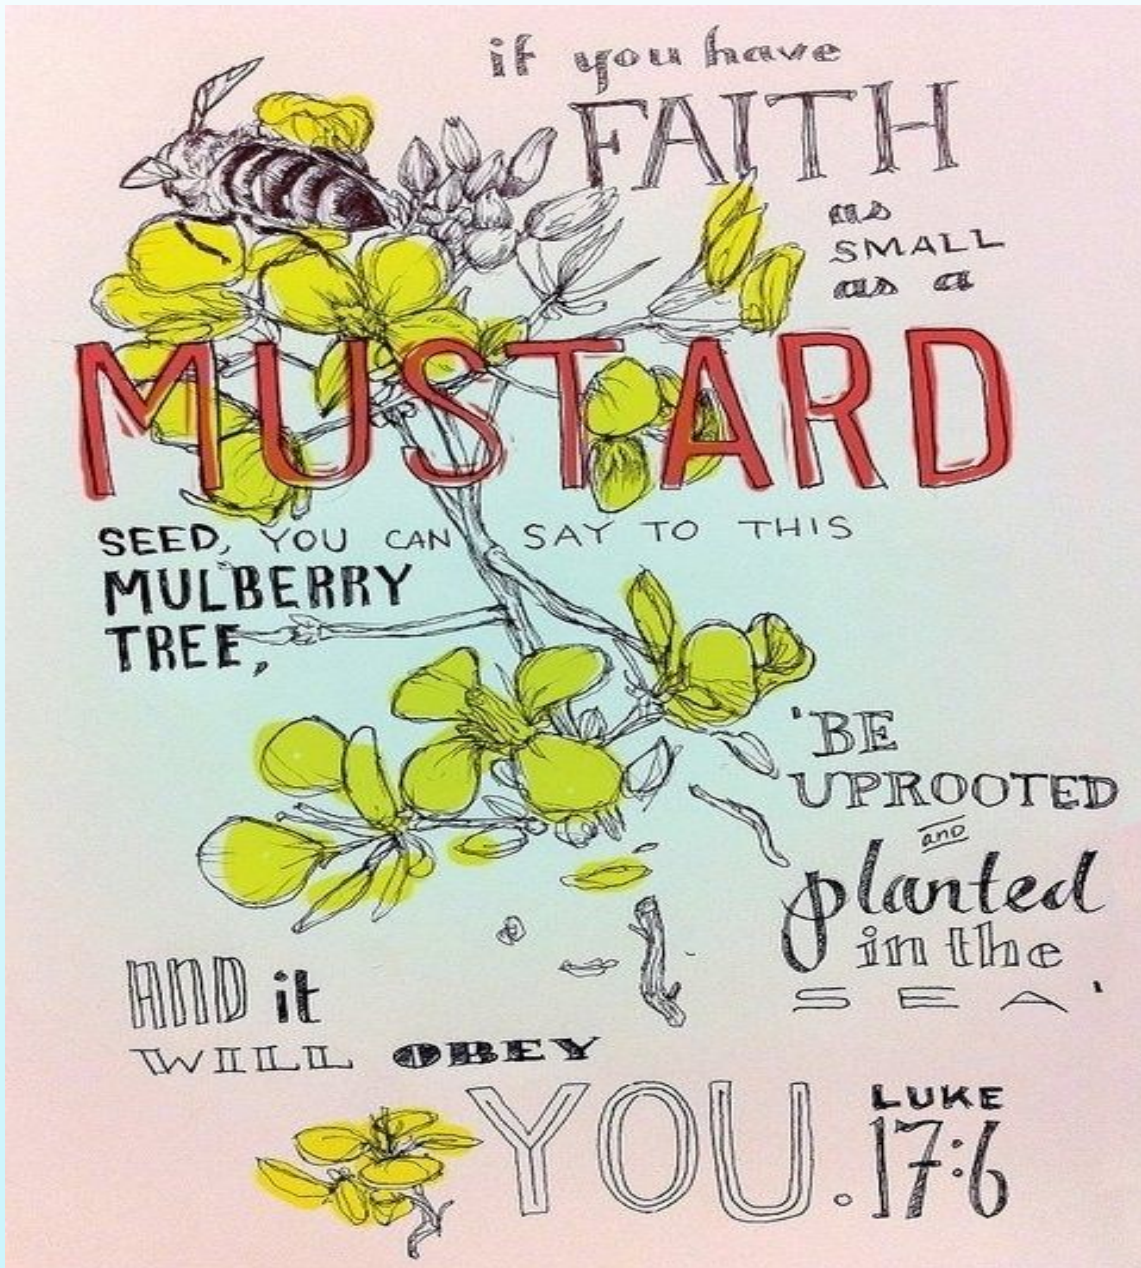 if you have
FAITH
as
SMALL
as a
MUSTARD
SEED, YOU CAN SAY TO THIS
MULBERRY
TREE,
'BE
UPROOTED
and
planted
in the
SEA'
AND it
WILL OBEY
YOU.
LUKE
17:6